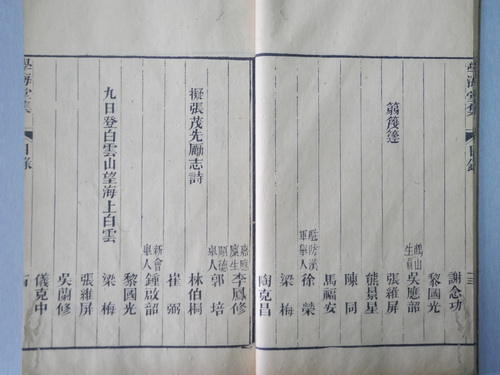 學海堂集 目錄
謝念功
黎國光
鶴山生員 吳應韶
張維屏
熊景星
陳同
馬福安
駐防漢軍舉人 徐榮
梁梅
陶克昌
李鳳修
順德舉人 郭培
擬張茂先勵志詩 林伯桐
崔弼
新會舉人 鍾啟韶
黎國光
九日登白雲山望海上白雲 梁梅
張維屏
吳蘭修
儀克中
學海堂集 目錄